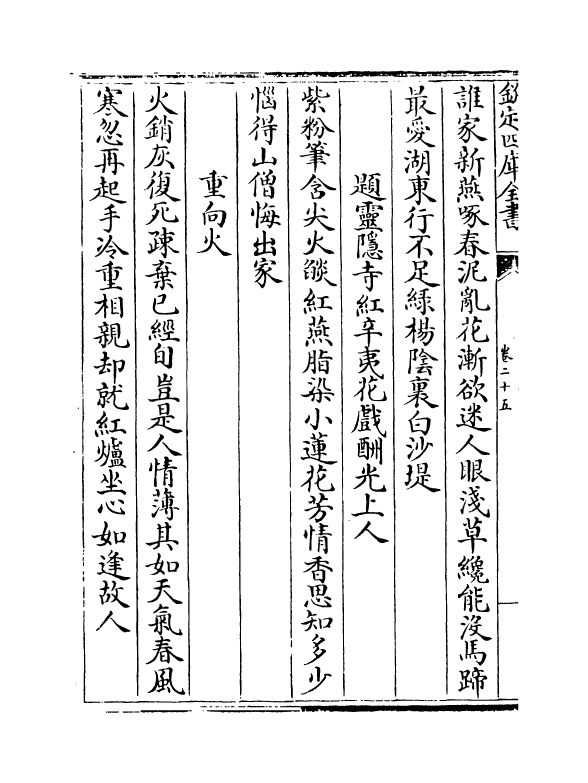 欽定四庫全書
卷二十五
誰家新燕啄春泥亂花漸欲迷人眼淺草纔能沒馬蹄
最愛湖東行不足綠楊陰裏白沙堤
題靈隱寺紅辛夷花戲酬光上人
紫粉筆含尖火燄紅燕脂染小蓮花芳情香思知多少
惱得山僧悔出家
重向火
火銷灰復死疎棄已經旬豈是人情薄其如天氣春風
寒忽再起手冷重相親却就紅爐坐心如逢故人